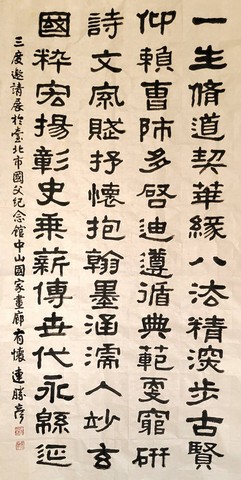 一生脩道契華緣八法精深步古賢
仰賴曹師多啓迪遵循典範更窮研
詩文賦抒懷抱翰墨涵濡入妙玄
國粹宏揚彰史乘薪傳世代永緜延
三度邀請展於臺北市國父紀念館中山國家畫廊有懷 連勝彥